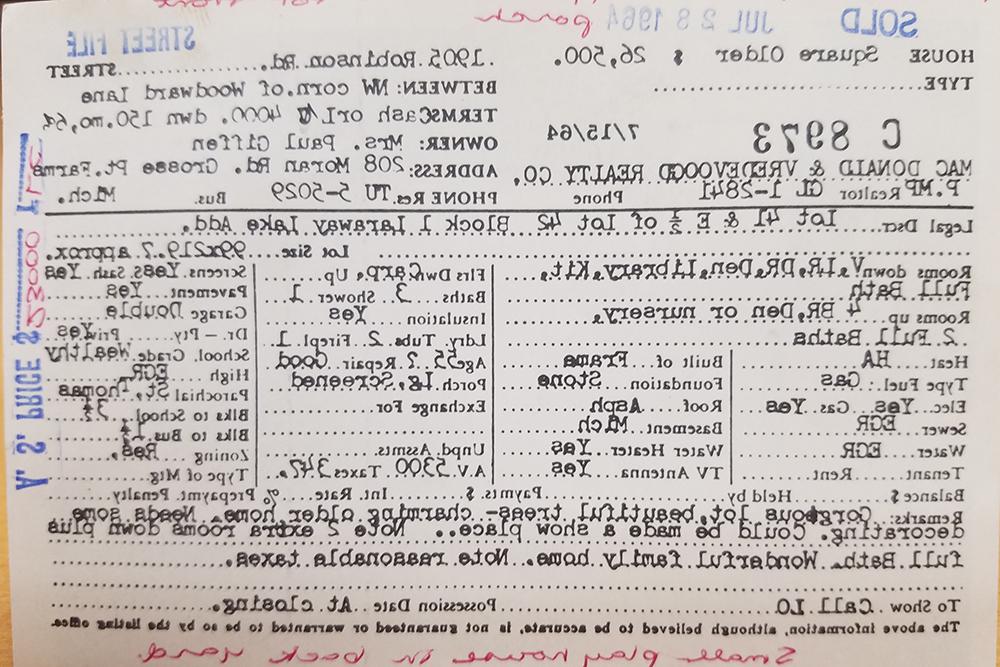 porch
SOLD JUL 28 1964 STREET FILE
HOUSE Square Older $ 26,500. 1905 Robinson Rd. STREET
TYPE BETWEEN: NW corn. of Woodward Lane
TERMS Cash or L/C 4000. dwn 150.mo,6%
C 8973 7/15/64 OWNER: Mrs. Paul Giffen
ADDRESS: 208 Moran Rd. Grosse Pt. Farms
MAC DONALD & VREDEVOOGD REALTY CO,
P.MP Realtor GL 1-2841 Phone PHONE Res. TU 5-5029 Bus. Mich.
Legal Dscr. Lot 41 & E ½ of Lot 42 Block 1 Laraway Lake Add.
Lot Size 99x219.7 approx.
Rooms down V,LR,DR,Den,Library,Kit, Flrs Dwn Carp. Up. Screens. Yes Sash. Yes
Full Bath Baths 3 Shower 1 Pavement Yes
Rooms up 4 BR,Den or nursery, Insulation Yes Garage Double
2 Full Baths Ldry. Tubs 2 Firepl 1 Dr. – Pty. Priv. Yes
Heat HA Built of Frame Age 55 ? Repair Good School. Grade Wealthy
Type Fuel: Gas Foundation Stone Porch Lg, Screened High EGR
Elec. Yes Gas Yes Roof Asph Exchange For Parochial St. Thomas
Sewer EGR Basement Mich Blks to School 3½
Water EGR Water Heater Yes Unpd. Assmts. Blks to Bus 1½
Tenant Rent TV Antenna Yes A.V. 5300 Taxes 347. Zoning Res.
Type of Mtg.
Balance $ Held by Paymts. $ Int. Rate % Prepaymt. Penalty
Remarks: Gorgeous lot, beautiful trees- charming older home. Needs some
decorating. Could be made a show place. Note 2 extra rooms down plus
full Bath. Wonderful family home. Note reasonable taxes.
To Show Call LO Possession Date At closing.
The above information, although believed to be accurate, is not guaranteed or warranted to be so by the listing office.
Small play house in back yard.
V. S. PRICE $ 23000